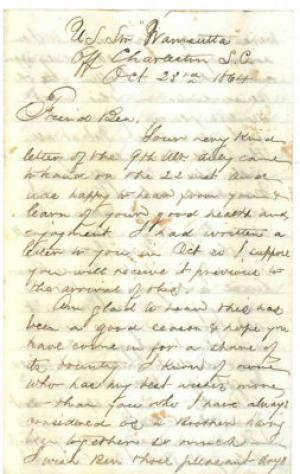 U.S. Str "Wamsutta"
Off Charleston S.C.
Oct 23rd 1864
Friend Ben,
Your very kind
letter of the 9th Ult. duly came
to hand on the 22 inst and
was happy to hear from you &
learn of your good health and
enjoyment. I had written a
letter to you in Oct so I suppose
you will receive it previous to
the arrival of this.
Am glad to hear this has
been a good season & hope you
have come in for a share of
its bounty. I know of
who has my best wishes more
so than you who I have always
considered as a Brother having
been together so much
I wish Ben those pleasant days